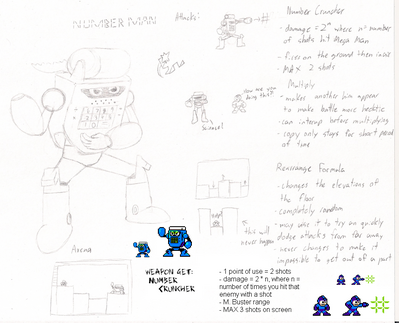 NUMBER MAN
Attacks:
Number Cruncher
- damage = 2^n where n = number
of shots hit Mega Man
- fires on the ground then
- MAX 2 shots
Multiply
- makes another him appear
to make battle more hectic
- can interrup before multiplying
- copy only stays for short period
of time
How are you
doing that?
Science!
Rearrange Formula
- changes the elevations of
the floor
- completely random
- may use it to try an quickly
dodge attacks from far away
- never changes to make it
impossible to get out of a part
this will
never happen
Arena
WEAPON GET:
NUMBER
CRUNCHER
- 1 point of use = 2 shots
- damage = 2^n, where n =
number of times you hit that
enemy with a shot
- M. Buster range
- MAX 3 shots on screen